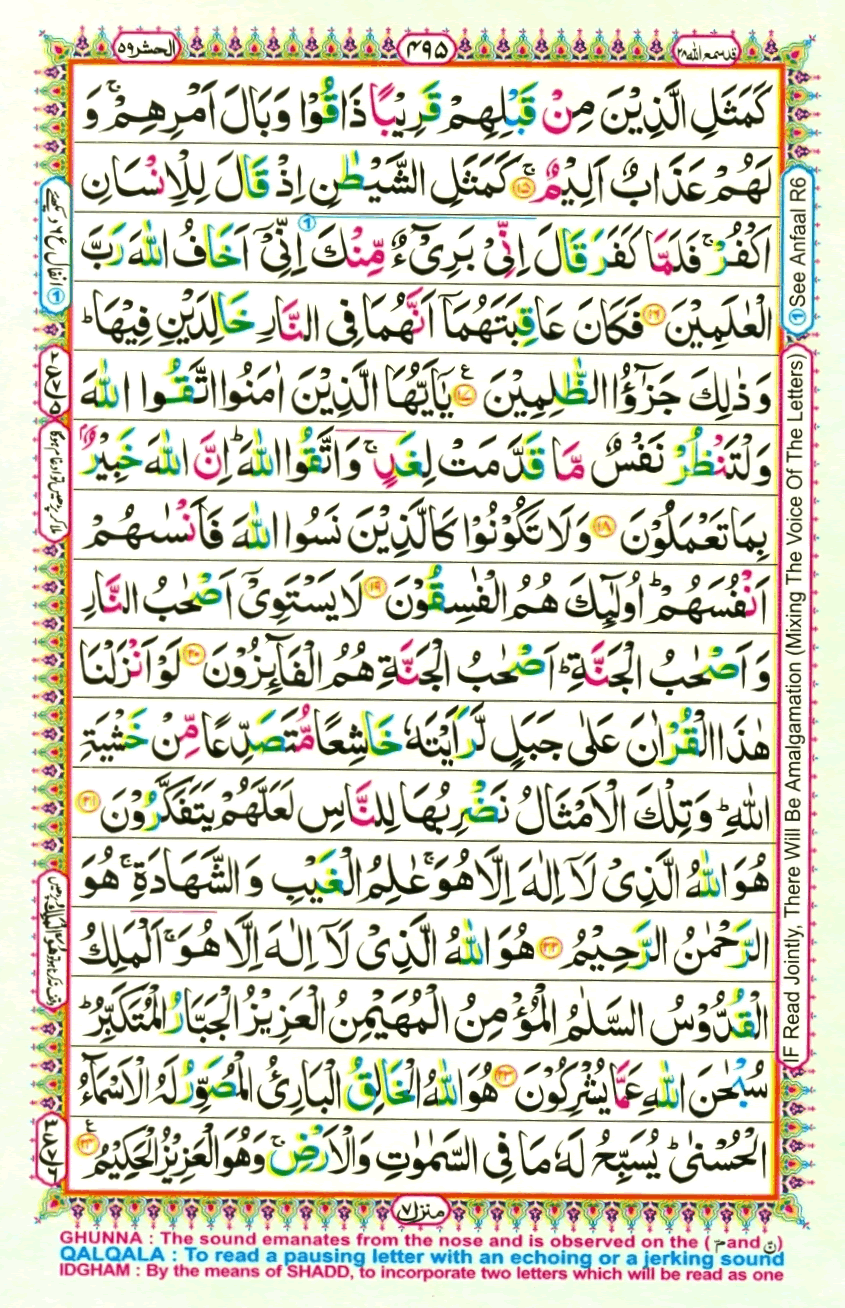 قد سمع الله ۲۸
۴۹۵
الحشر ۵۹
كَمَثَلِ الَّذِيْنَ مِنْ قَبْلِهِمْ قَرِيْبًا ذَاقُوْا وَبَالَ اَمْرِهِمْ ۚ وَ
لَهُمْ عَذَابٌ اَلِيْمٌ ۚ ﴿۱۵﴾ كَمَثَلِ الشَّيْطٰنِ اِذْ قَالَ لِلْاِنْسَانِ
اكْفُرْ ۚ فَلَمَّا كَفَرَ قَالَ اِنِّىْ بَرِىْٓءٌ مِّنْكَ اِنِّىْٓ اَخَافُ اللّٰهَ رَبَّ
الْعٰلَمِيْنَ ﴿۱۶﴾ فَكَانَ عَاقِبَتَهُمَآ اَنَّهُمَا فِى النَّارِ خَالِدَيْنِ فِيْهَا ؕ
وَذٰلِكَ جَزٰٓؤُا الظّٰلِمِيْنَ ﴿۱۷﴾ يٰٓاَيُّهَا الَّذِيْنَ اٰمَنُوا اتَّقُوا اللّٰهَ
وَلْتَنْظُرْ نَفْسٌ مَّا قَدَّمَتْ لِغَدٍ ۚ وَاتَّقُوا اللّٰهَ ؕ اِنَّ اللّٰهَ خَبِيْرٌۢ
بِمَا تَعْمَلُوْنَ ﴿۱۸﴾ وَلَا تَكُوْنُوْا كَالَّذِيْنَ نَسُوا اللّٰهَ فَاَنْسٰىهُمْ
اَنْفُسَهُمْ ؕ اُولٰٓئِكَ هُمُ الْفٰسِقُوْنَ ﴿۱۹﴾ لَا يَسْتَوِىْٓ اَصْحٰبُ النَّارِ
وَاَصْحٰبُ الْجَنَّةِ ؕ اَصْحٰبُ الْجَنَّةِ هُمُ الْفَآئِزُوْنَ ﴿۲۰﴾ لَوْ اَنْزَلْنَا
هٰذَا الْقُرْاٰنَ عَلٰى جَبَلٍ لَّرَاَيْتَهٗ خَاشِعًا مُّتَصَدِّعًا مِّنْ خَشْيَةِ
اللّٰهِ ؕ وَتِلْكَ الْاَمْثَالُ نَضْرِبُهَا لِلنَّاسِ لَعَلَّهُمْ يَتَفَكَّرُوْنَ ﴿۲۱﴾
هُوَ اللّٰهُ الَّذِىْ لَآ اِلٰهَ اِلَّا هُوَ ۚ عٰلِمُ الْغَيْبِ وَالشَّهَادَةِ ۚ هُوَ
الرَّحْمٰنُ الرَّحِيْمُ ﴿۲۲﴾ هُوَ اللّٰهُ الَّذِىْ لَآ اِلٰهَ اِلَّا هُوَ ۚ اَلْمَلِكُ
الْقُدُّوْسُ السَّلٰمُ الْمُؤْمِنُ الْمُهَيْمِنُ الْعَزِيْزُ الْجَبَّارُ الْمُتَكَبِّرُ ؕ
سُبْحٰنَ اللّٰهِ عَمَّا يُشْرِكُوْنَ ﴿۲۳﴾ هُوَ اللّٰهُ الْخَالِقُ الْبَارِئُ الْمُصَوِّرُ لَهُ الْاَسْمَآءُ
الْحُسْنٰى ؕ يُسَبِّحُ لَهٗ مَا فِى السَّمٰوٰتِ وَالْاَرْضِ ۚ وَهُوَ الْعَزِيْزُ الْحَكِيْمُ ﴿۲۴﴾
① See Anfaal R6
IF Read Jointly, There Will Be Amalgamation (Mixing The Voice Of The Letters)
منزل ۷
GHUNNA : The sound emanates from the nose and is observed on the ( مّ and نّ )
QALQALA : To read a pausing letter with an echoing or a jerking sound
IDGHAM : By the means of SHADD, to incorporate two letters which will be read as one